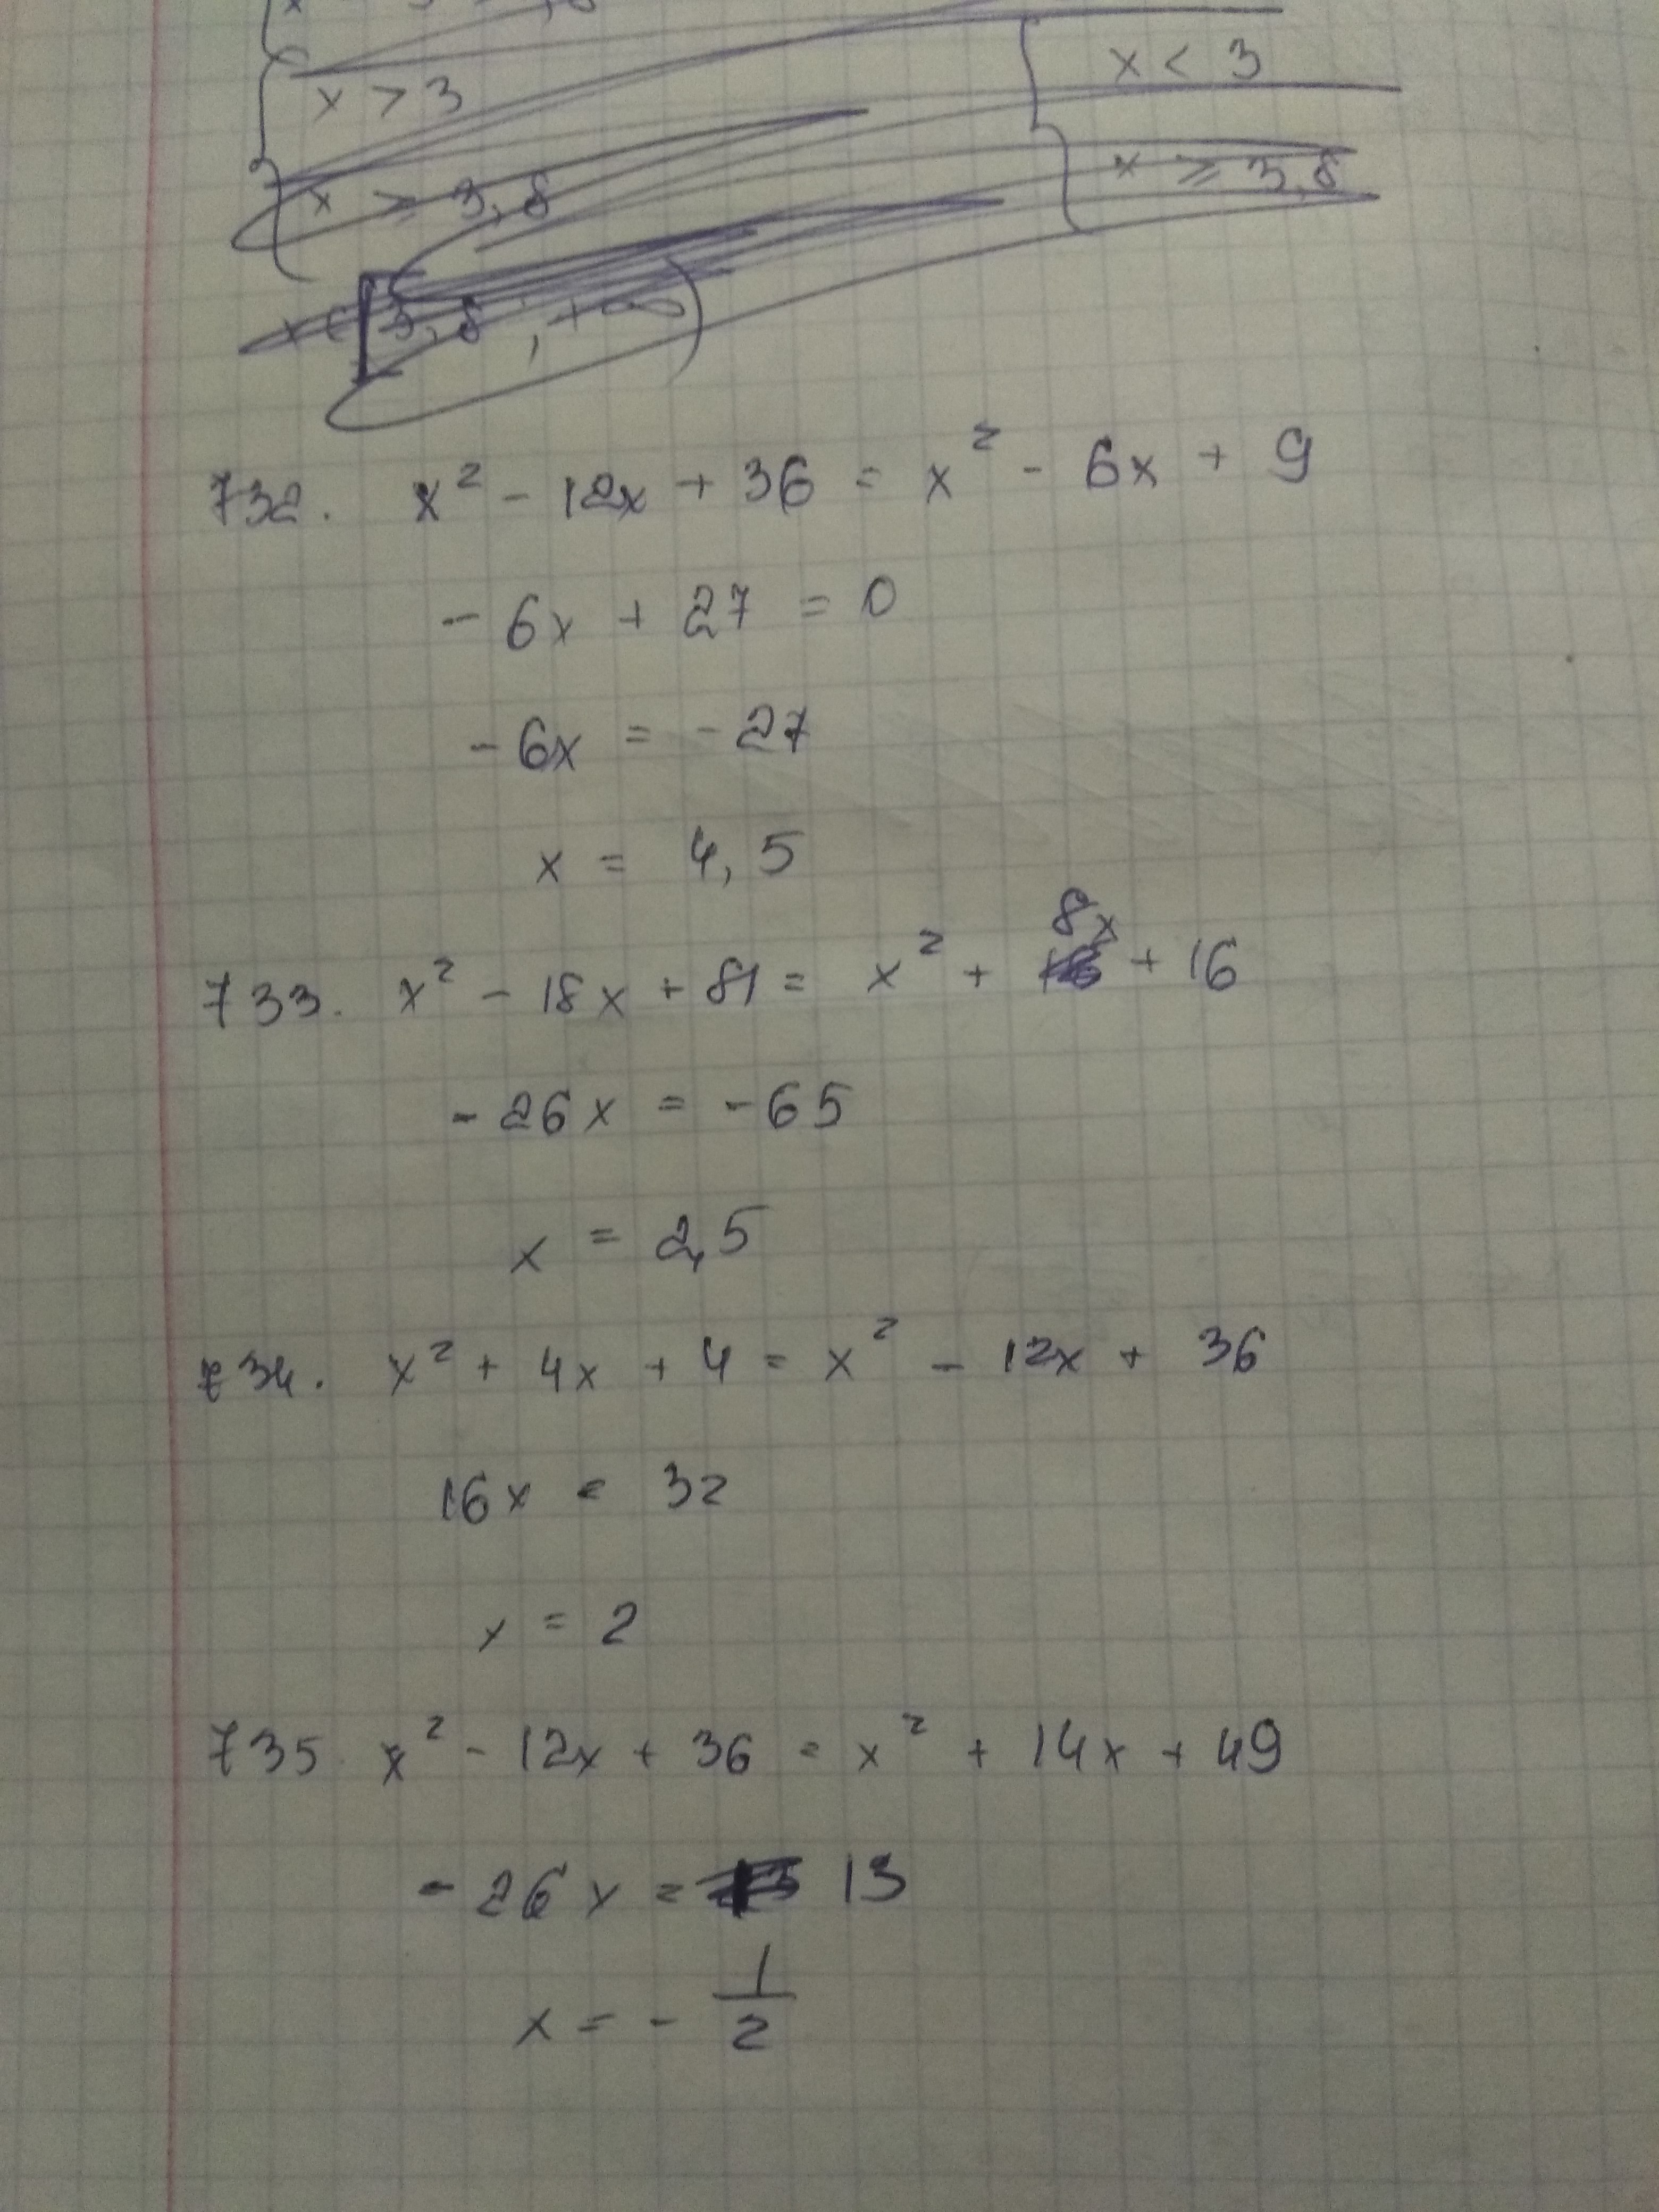 x > 3
x < 3
x ⩾ 3,8
x ⩾ 3,8
x ∈ [3,8 ; +∞)
732. x² - 12x + 36 = x² - 6x + 9
- 6x + 27 = 0
- 6x = - 27
x = 4,5
733. x² - 18x + 81 = x² + 8x + 16
- 26x = - 65
x = 2,5
734. x² + 4x + 4 = x² - 12x + 36
16x = 32
x = 2
735. x² - 12x + 36 = x² + 14x + 49
- 26x = 13
x = - 1/2